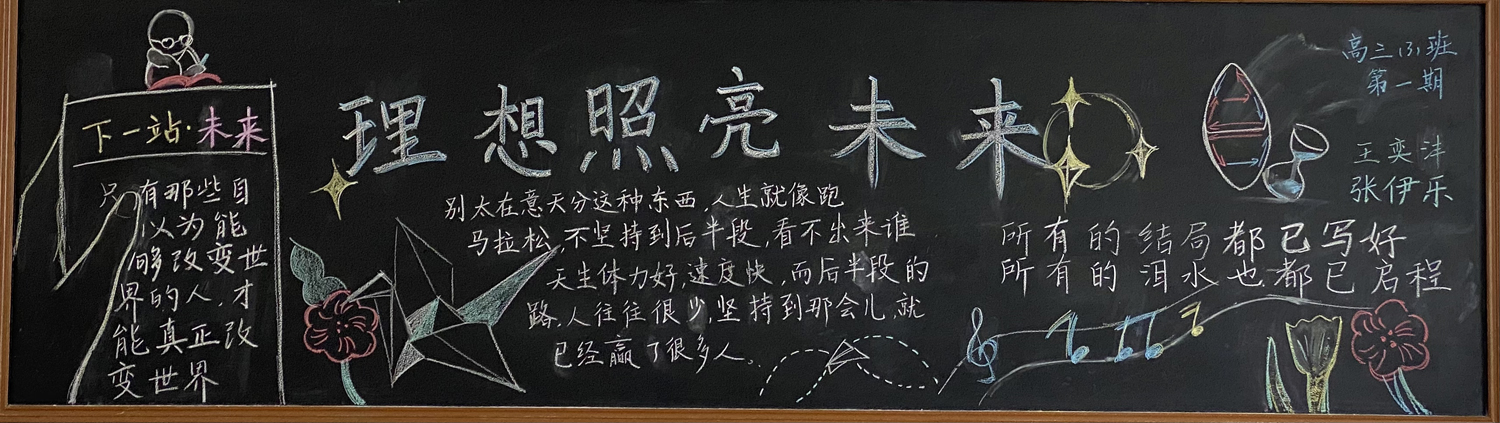 下一站·未来
只有那些自
以为能
够改变世
界的人,才
能真正改
变世界
理想照亮未来
别太在意天分这种东西,人生就像跑
马拉松,不坚持到后半段,看不出来谁
天生体力好,速度快,而后半段的
路,人往往很少,坚持到那会儿,就
已经赢了很多人。
高三(3)班
第一期
王奕沣
张伊乐
所有的结局都已写好
所有的泪水也都已启程